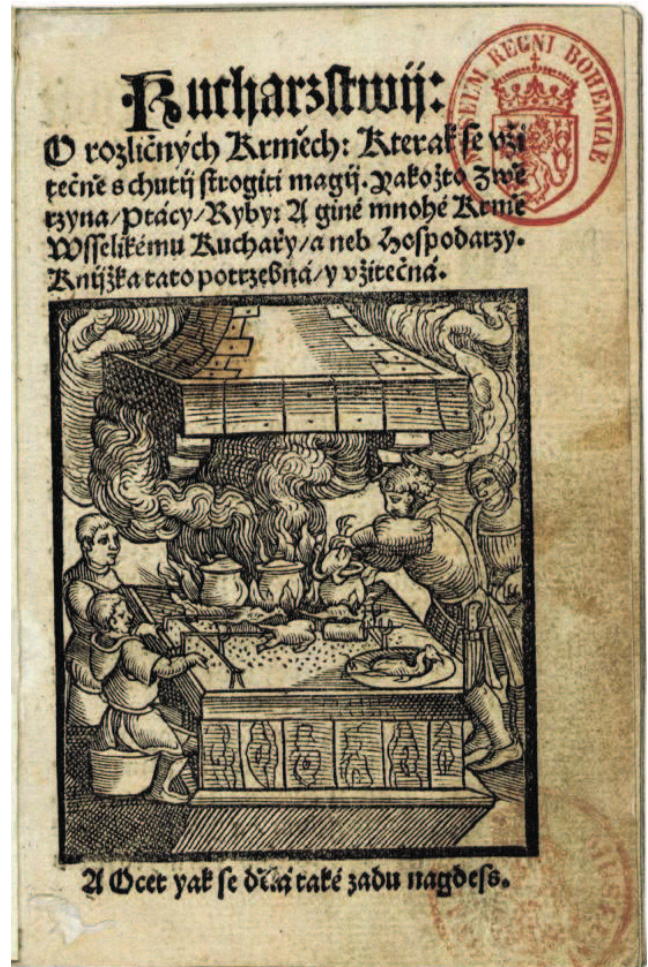 Kucharzstwij:
O rozličných Krměch: Kterak se vži
tečně s chutij strogiti magij. Yakožto Zwě
rzyna/Ptácy/Ryby: A giné mnohé Krmě
Wsselikému Kuchařy/a neb Hospodarzy.
Knijžka tato potrzebná/y vžitečná.
A Ocet yak se dělá také zadu nagdess.
MUSEUM REGNI BOHEMIAE